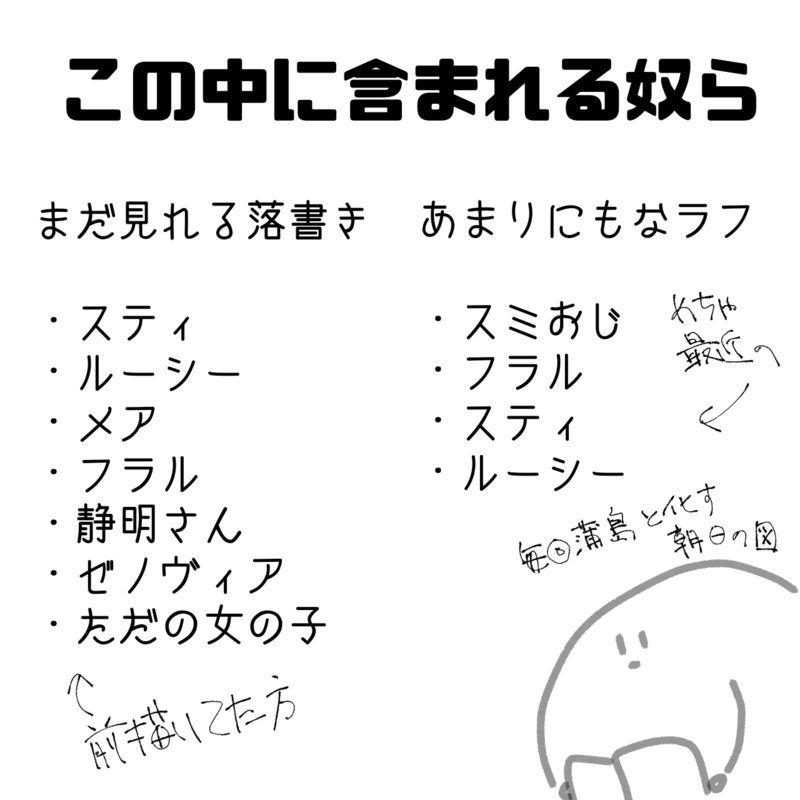 この中に含まれる奴ら
まだ見れる落書き
・スティ
・ルーシー
・メア
・フラル
・静明さん
・ゼノヴィア
・ただの女の子
前描いてた方
あまりにもなラフ
・スミおじ
・フラル
・スティ
・ルーシー
めちゃ
最近の
毎回蒲島と化す
朝日の図